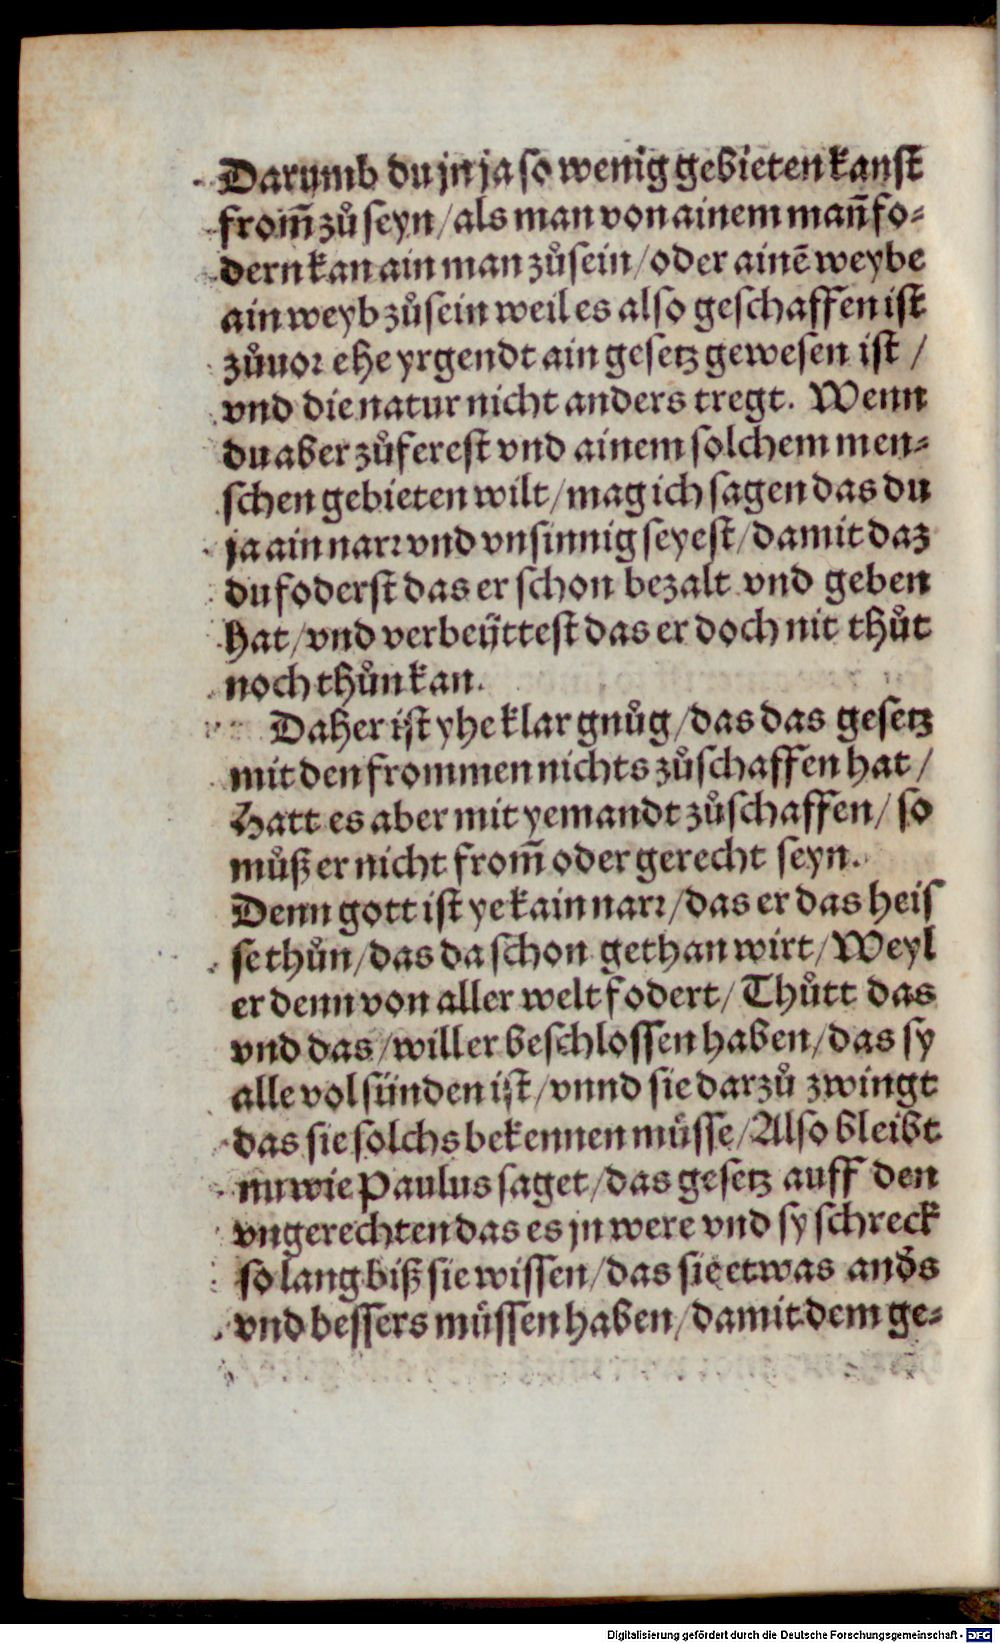 Darumb du jn ja so wenig gebieten kanst
from̄ zů seyn / als man von ainem man̄ fo⸗
dern kan ain man zů sein / oder ainē weybe
ain weyb zů sein weil es also geschaffen ist
zůuor ehe yrgendt ain gesetz gewesen ist /
vnd die natur nicht anders tregt. Wenn
du aber zů ferest vnd ainem solchem men⸗
schen gebieten wilt / mag ich sagen das du
ja ain narr vnd vnsinnig seyest / damit daz
du foderst das er schon bezalt vnd geben
hat / vnd verbeüttest das er doch nit thůt
noch thůn kan.
Daher ist yhe klar gnůg / das das gesetz
mit den frommen nichts zůschaffen hat /
Hatt es aber mit yemandt zůschaffen / so
můß er nicht from̄ oder gerecht seyn.
Denn gott ist ye kain narr / das er das heis
se thůn / das da schon gethan wirt / Weyl
er denn von aller welt fodert / Thůtt das
vnd das / will er beschlossen haben / das sy
alle vol sünden ist / vnnd sie darzů zwingt
das sie solchs bekennen müsse / Also bleibt
nu wie Paulus saget / das gesetz auff den
vngerechten das es jn were vnd sy schreck
so lang biß sie wissen / das sie etwas anđs
vnd bessers müssen haben / damit dem ge⸗
Digitalisierung gefördert durch die Deutsche Forschungsgemeinschaft - DFG